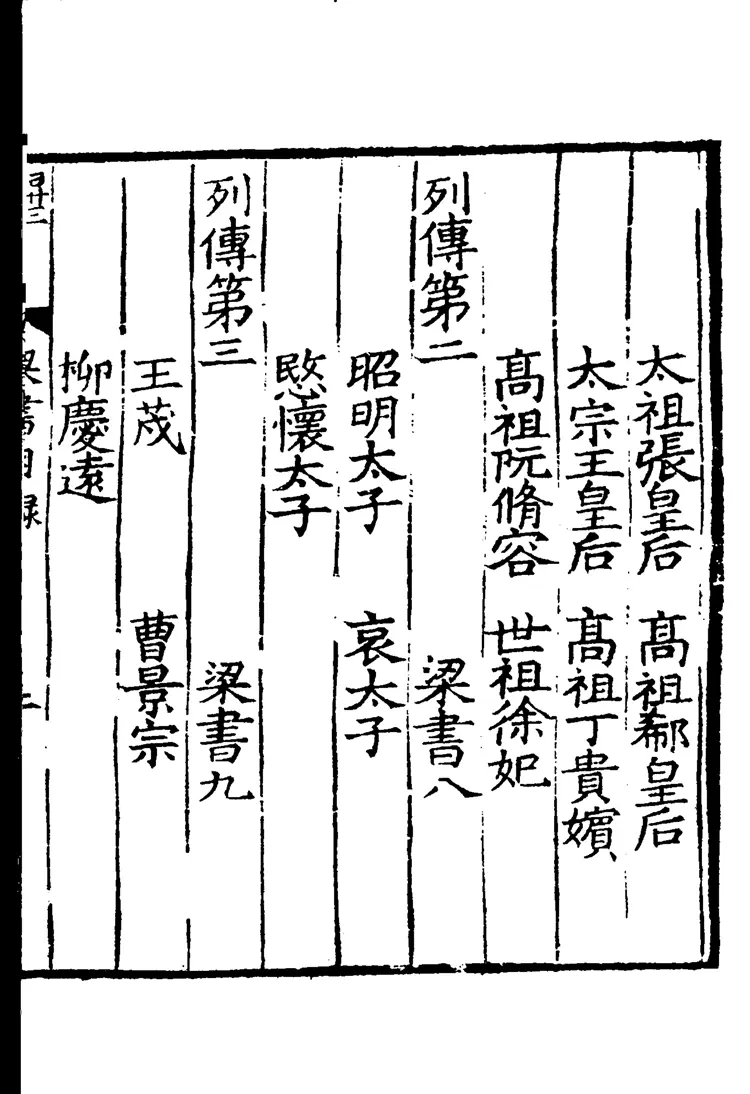 太祖張皇后　髙祖郗皇后
太宗王皇后　髙祖丁貴嬪
髙祖阮脩容　世祖徐妃
列傳第二　梁書八
昭明太子　哀太子
愍懷太子
列傳第三　梁書九
王茂　曹景宗
柳慶遠